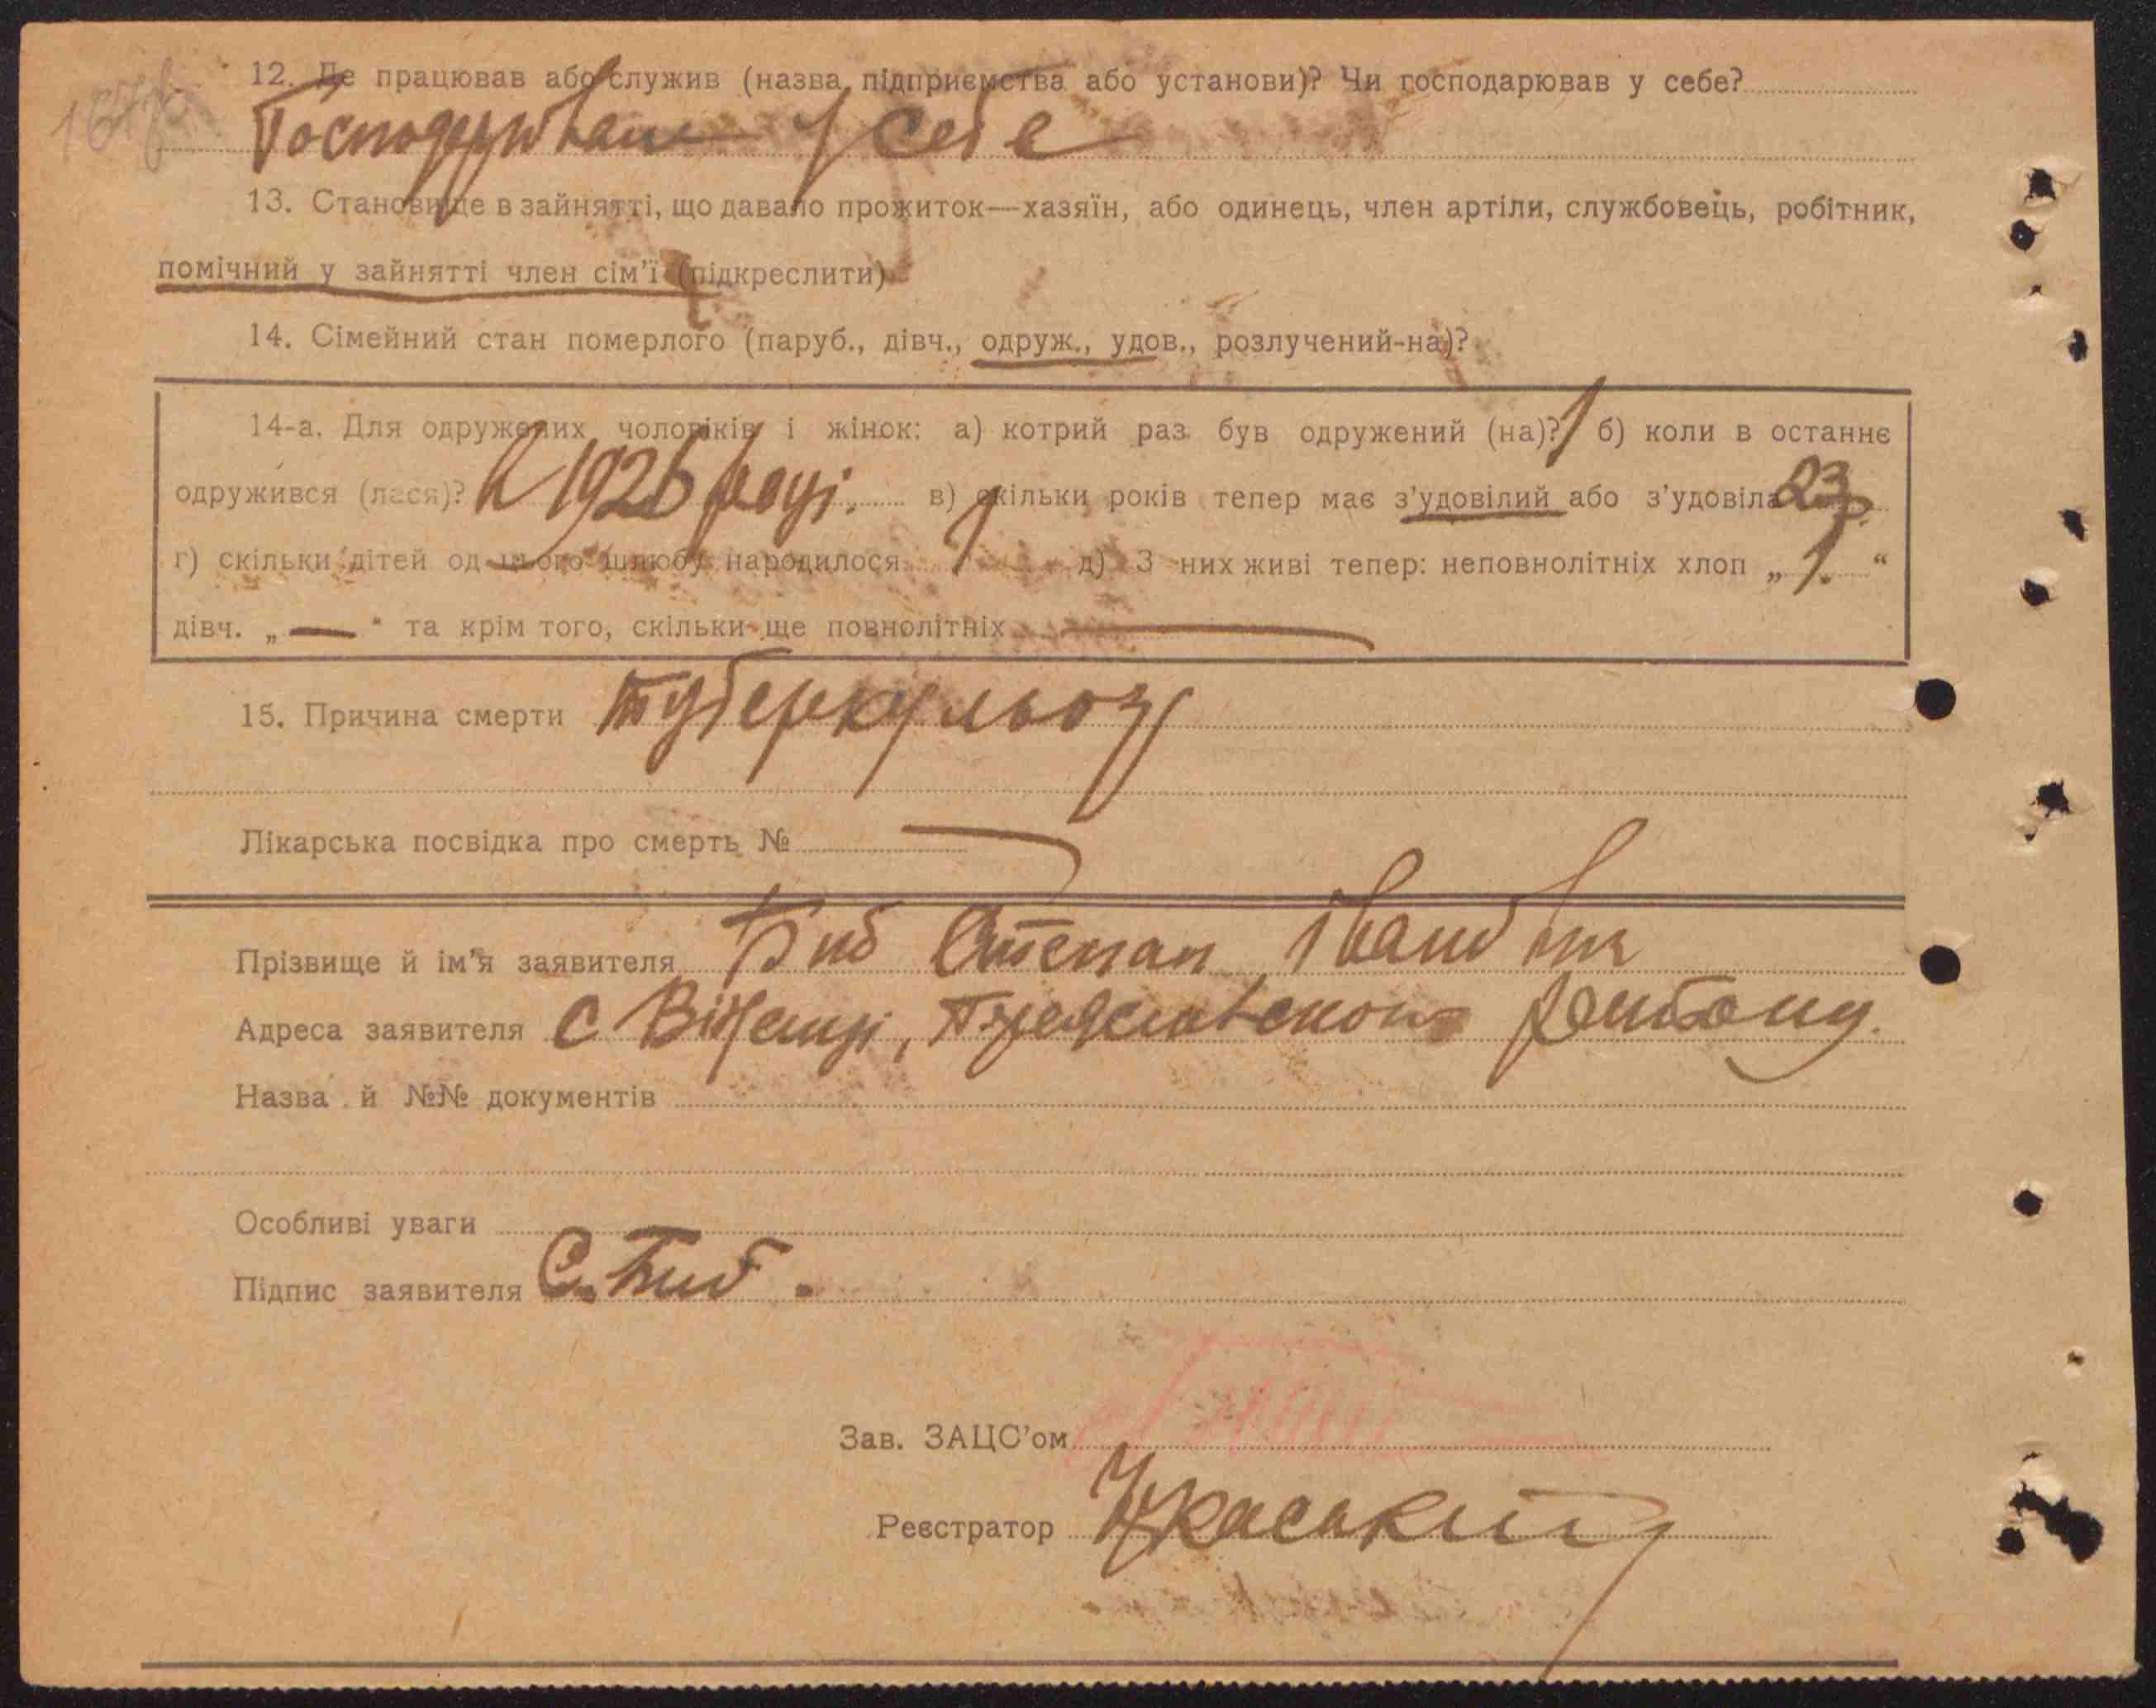 12. Де працював або служив (назва підприємства або установи)? Чи господарював у себе?
у себе
13. Становище в зайнятті, що давало прожиток—хазяїн, або одинець, член артіли, службовець, робітник,
помічний у зайнятті член сім'ї (підкреслити)
14. Сімейний стан померлого (паруб., дівч., одруж., удов., розлучений-на)?
14-а. Для одружених чоловіків і жінок: а) котрий раз був одружений (на)? 1 б) коли в останнє
одружився (лася)? В 1926 році. в) скільки років тепер має з'удовілий або з'удовіла 23
г) скільки дітей од цього шлюбу народилося 1 д) З них живі тепер: неповнолітніх хлоп „ 1. “
дівч. „ — “ та крім того, скільки ще повнолітніх —
15. Причина смерти туберкульоз
Лікарська посвідка про смерть № —
Прізвище й ім'я заявителя Биб Степан Іванович
Адреса заявителя с Віненці, Переяславського району.
Назва й №№ документів
Особливі уваги
Підпис заявителя С. Биб.
Зав. ЗАЦС'ом
Реєстратор